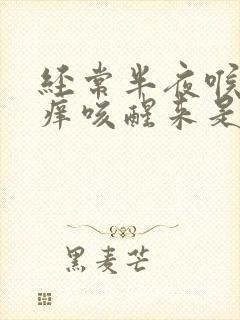 经常半夜喉
痒咳醒来是
黑麦芒